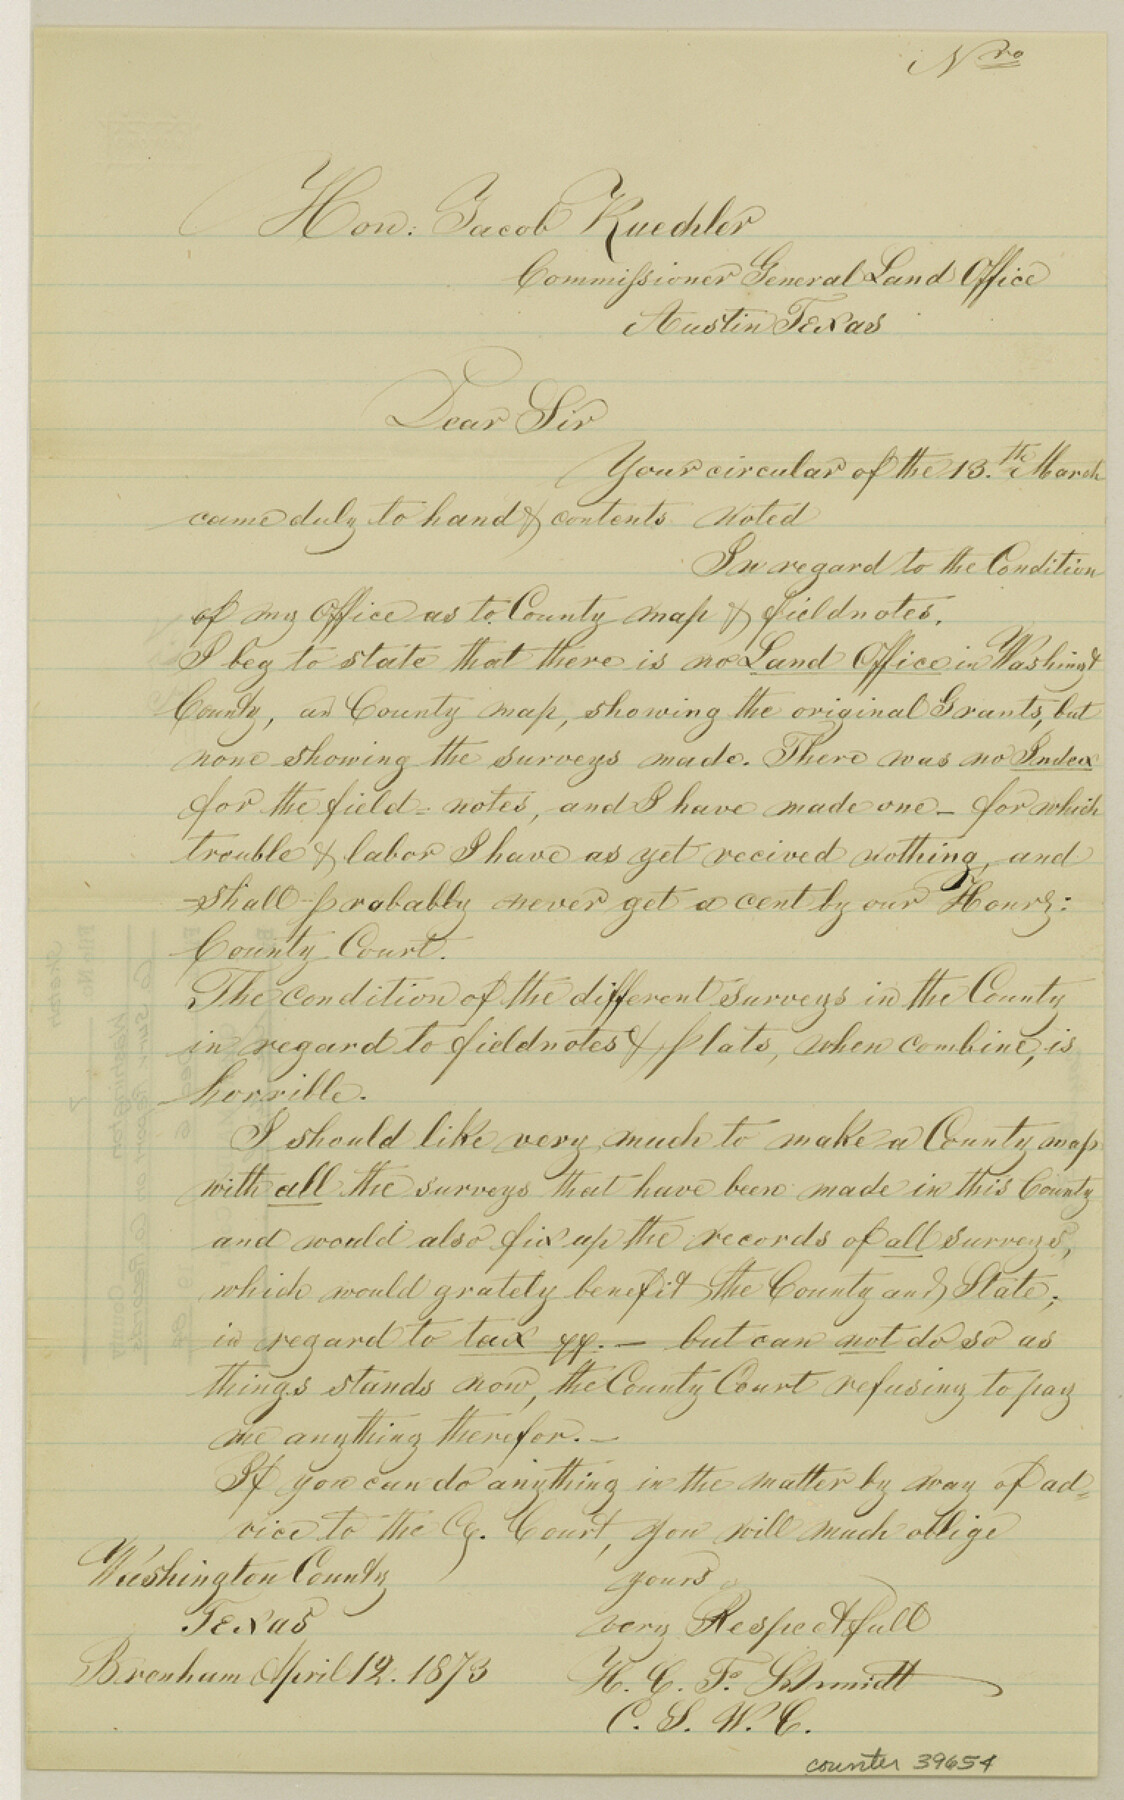 Nro
Hon: Jacob Kuechler
Commissioner General Land Office
Austin Texas
Dear Sir
Your circular of the 13.th March
came duly to hand & contents noted
In regard to the Condition
of my Office as to County map & fieldnotes.
I beg to state that there is no Land Office in Washingt
County, an County map, showing the original Grants, but
none showing the surveys made. There was no Index
for the field= notes, and I have made one – for which
trouble & labor I have as yet recived nothing, and
shall probably never get a cent by our
County Court.
The condition of the different surveys in the County
in regard to fieldnotes & plats, when combine, is
horrible.
I should like very much to make a County map
with all the surveys that have been made in this County
and would also fix up the records of all surveys,
which would grately benefit the County and State,
in regard to tax – but can not do so as
things stands now, the County Court refusing to pay
me anything therefor. –
If you can do anything in the matter by way of ad=
vice to the Cy. Court, you will much oblige
Washington County yours
Texas very Respectfull
Brenham April 12. 1873 H. C. F. Schmidt
C. S. W. C.
counter 39654